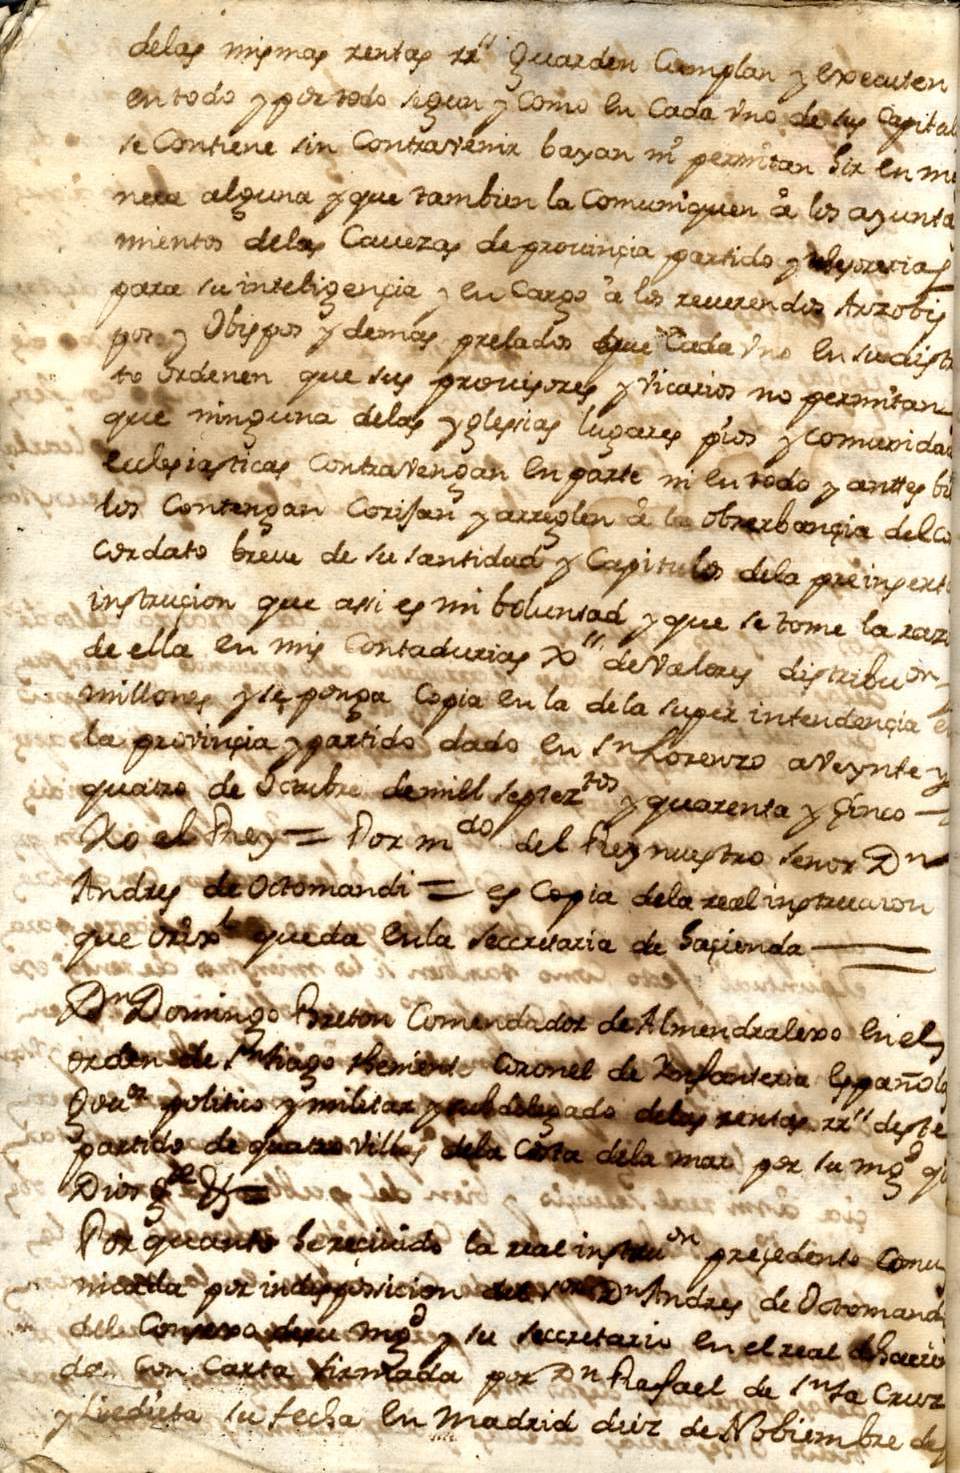 delas mismas rentas rr.s Guarden Cumplan y executen
en todo y por todo segun y como en Cada vno de sus Capitul
se Contiene sin Contravenir bayan ni permitan Sir en ma
nera alguna y que tambien la Comuniquen â los ayunta
mientos delas Cavezas de provinçia partido y thesorerias
para su inteligençia y en Cargo â los reuerendos Arzobis
pos y Obispos y demas prelados que Cada vno en su distri
to ordenen que sus provisores y vicarios no permitan
que ninguna delas yglesias lugares pios y comunidad
eclesiasticas Contravengan en parte ni en todo y anttes bi
los Contengan Corijan y arreglen â la obserbançia del Co
cordato breve de su santidad y Capitulos dela preinserta
instruçion que assi es mi boluntad y que se tome la razo
de ella en mis Contadurias xx.s de valores distribu.on
millones y se ponga Copia en la dela super intendençia e
la provinçia y partido dado en S.n Lorenzo a veynte y
quatro de Octubre demill septez.tos y quarenta y çinco =
Yo el Rey = Por m.do del Rey nuestro señor D.n
Andres de Octomandi = es Copia dela real instruccion
que orix.l queda en la seccretaria de haçienda
D.n Domingo Breton Comendador de Almendralexo en el
orden de S.ntiago theniente Coronel de Infanteria Española
Gou.or politico y militar y subdelegado delas rentas rr.s deste
partido de quatro Villas dela Costa dela mar por su mg.d q
Dios g.de &.=
Por quanto he reçiuido la real instru.on preçedente Comu
nicada por indisposicion del s.or D.n Andres de Octomandi
del Consexo de su mg.d y su seccretario en el real de haçien
da Con Carta firmada por D.n Rafael de S.nta Cruz
y su fecha en Madrid diez de Nobiembre de